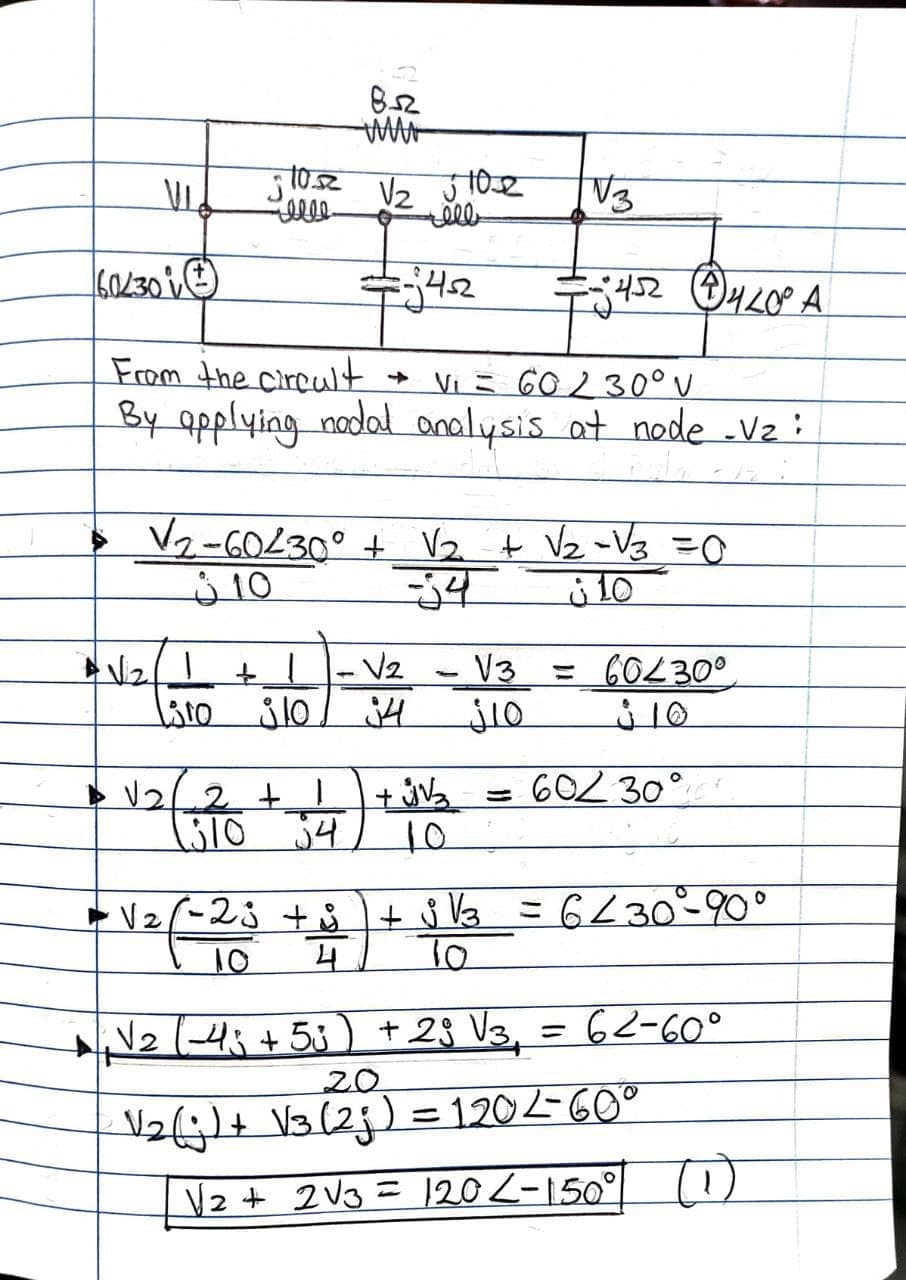 8Ω
j10Ω V2 j10Ω
V1 V3
60∠30°v + -j4Ω -j4Ω 4∠0° A
From the circult → V1 = 60∠30° V
By applying nodal analysis at node -V2 :
▸ (V2-60∠30°)/(j10) + V2/(-j4) + (V2-V3)/(j10) = 0
▸ V2(1/(j10) + 1/(j10)) - V2/(j4) - V3/(j10) = 60∠30°/(j10)
▸ V2(2/(j10) + 1/(j4)) + jV3/10 = 60∠30°
▸ V2(-2j/10 + j/4) + jV3/10 = 6∠30°-90°
▸ (V2(-4j + 5j) + 2j V3)/20 = 6∠-60°
V2(j) + V3(2j) = 120∠-60°
V2 + 2V3 = 120∠-150° (1)